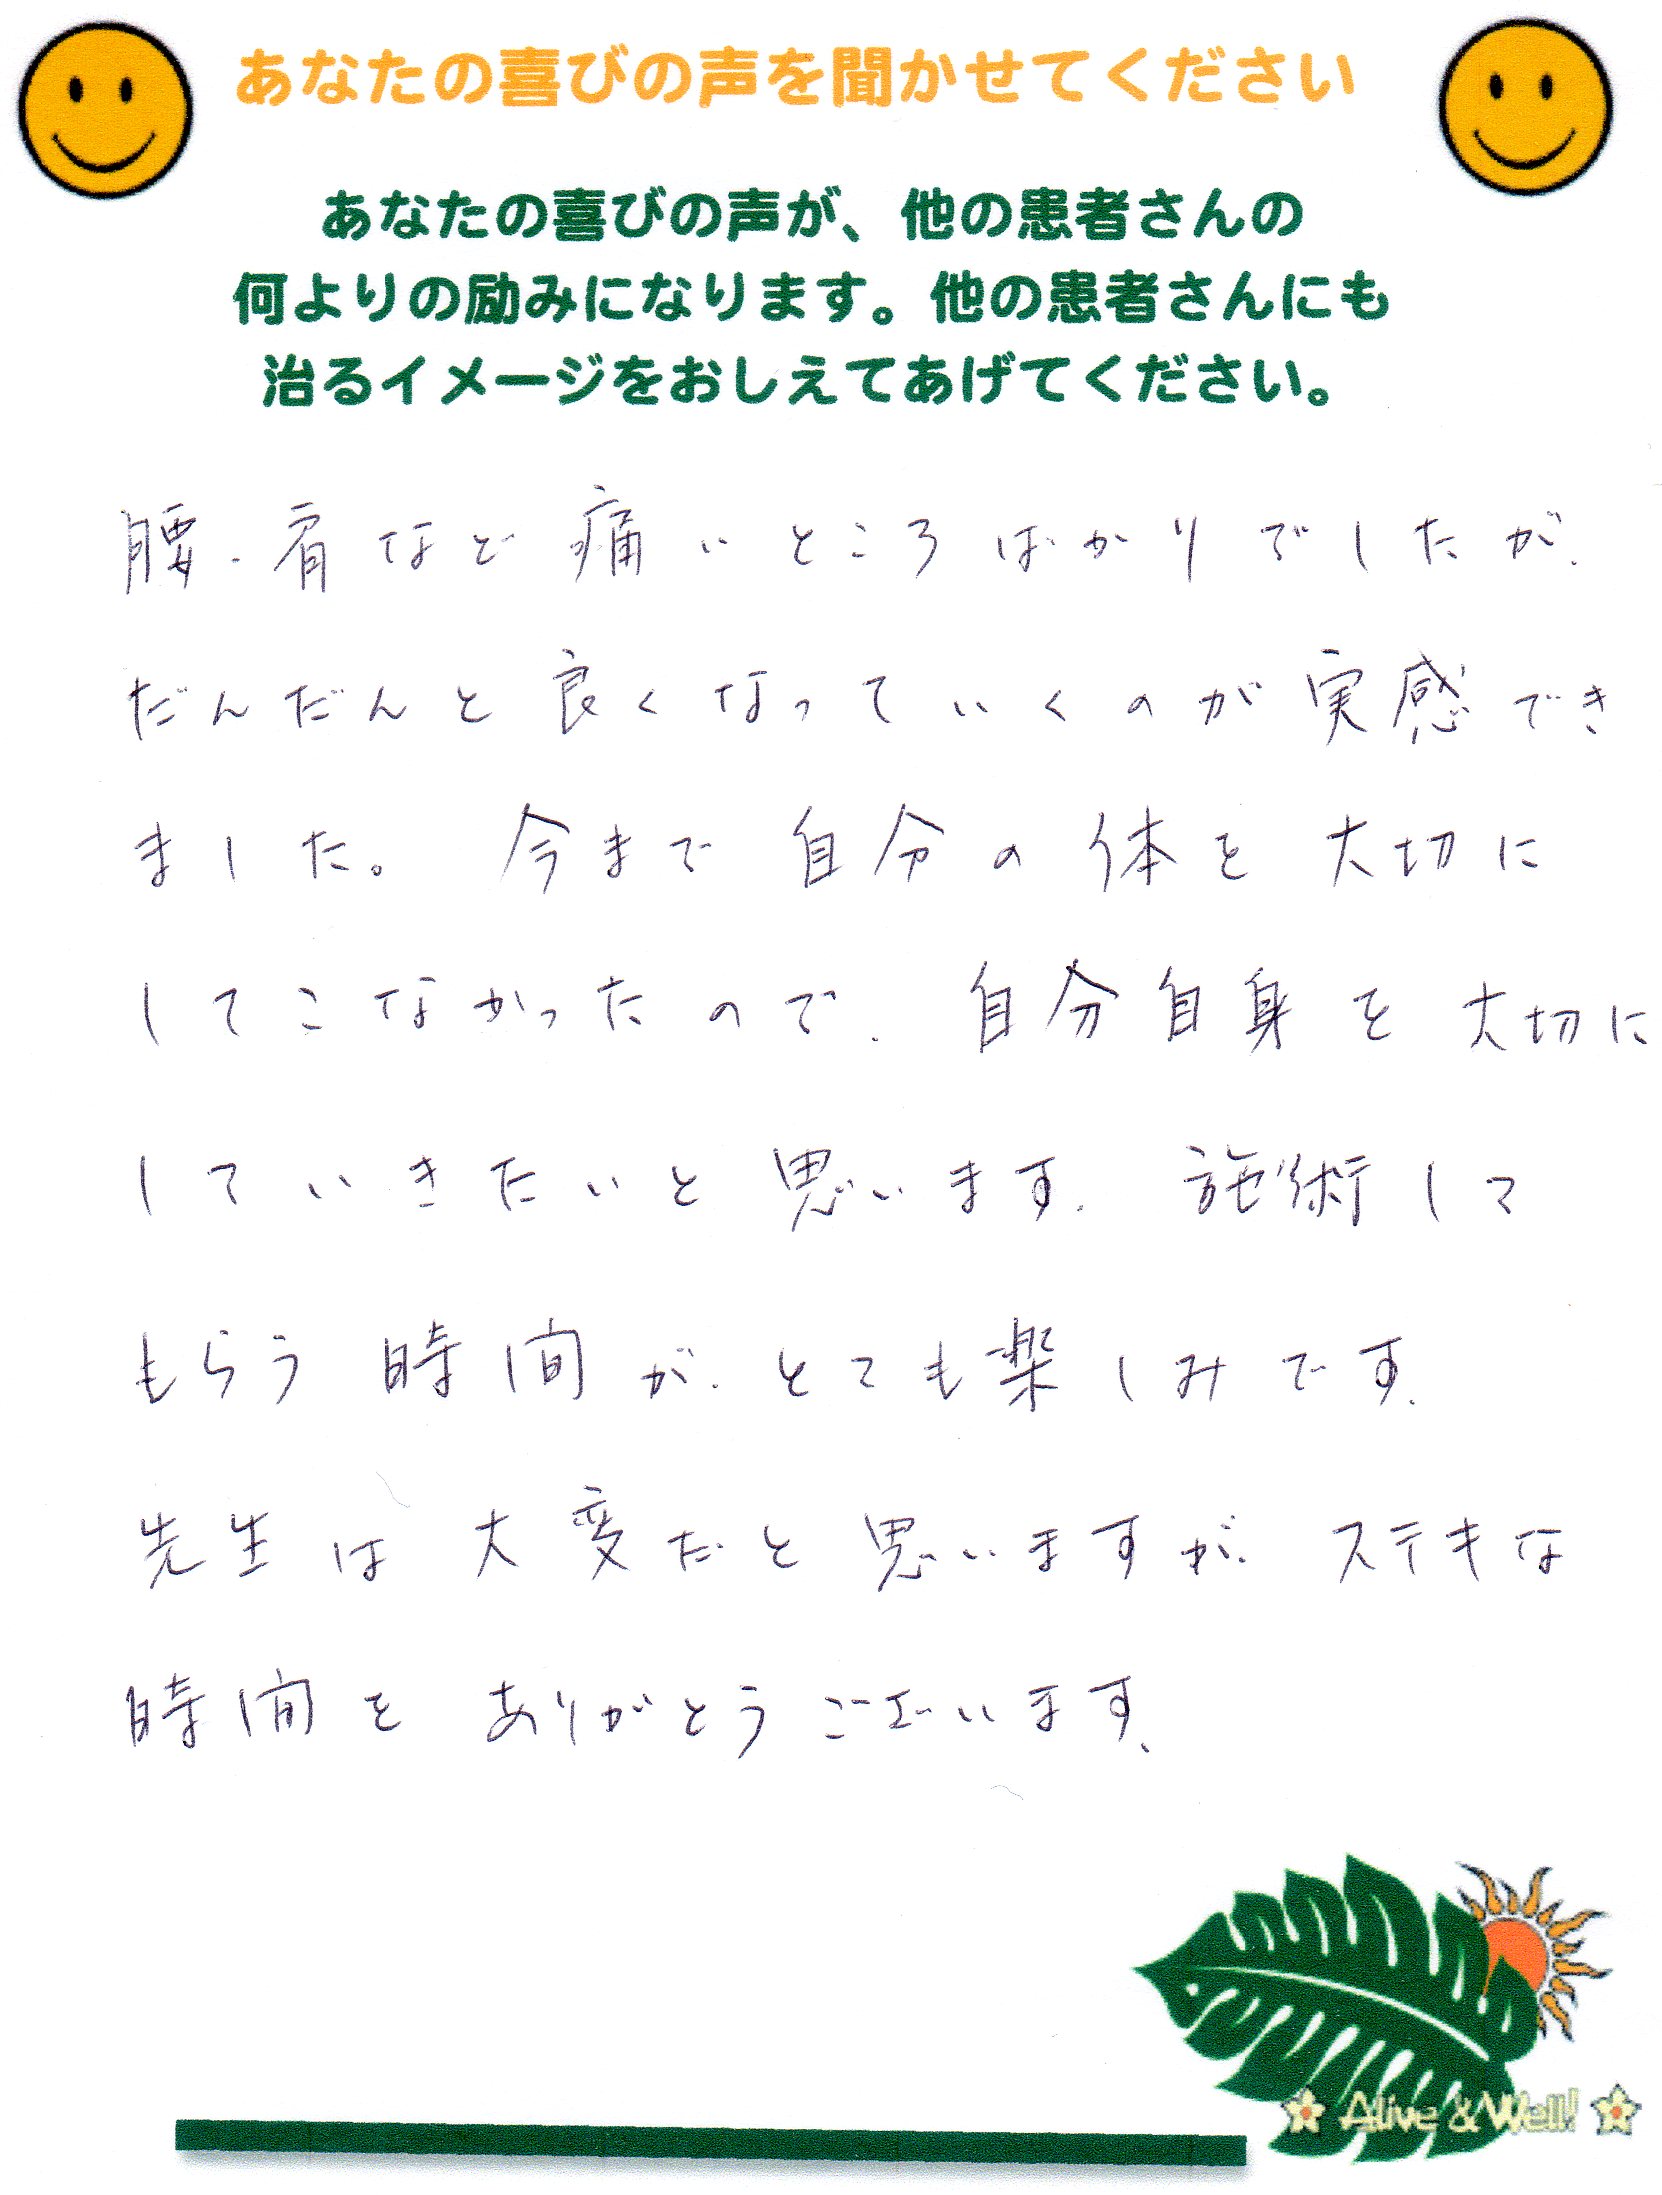 あなたの喜びの声を聞かせてください
あなたの喜びの声が、他の患者さんの
何よりの励みになります。他の患者さんにも
治るイメージをおしえてあげてください。
腰・肩など痛いところばかりでしたが、
だんだんと良くなっていくのが実感でき
ました。今まで自分の体を大切に
してこなかったので、自分自身を大切に
していきたいと思います。施術して
もらう時間が、とても楽しみです。
先生は大変だと思いますが、ステキな
時間をありがとうございます。
Alive & Well!